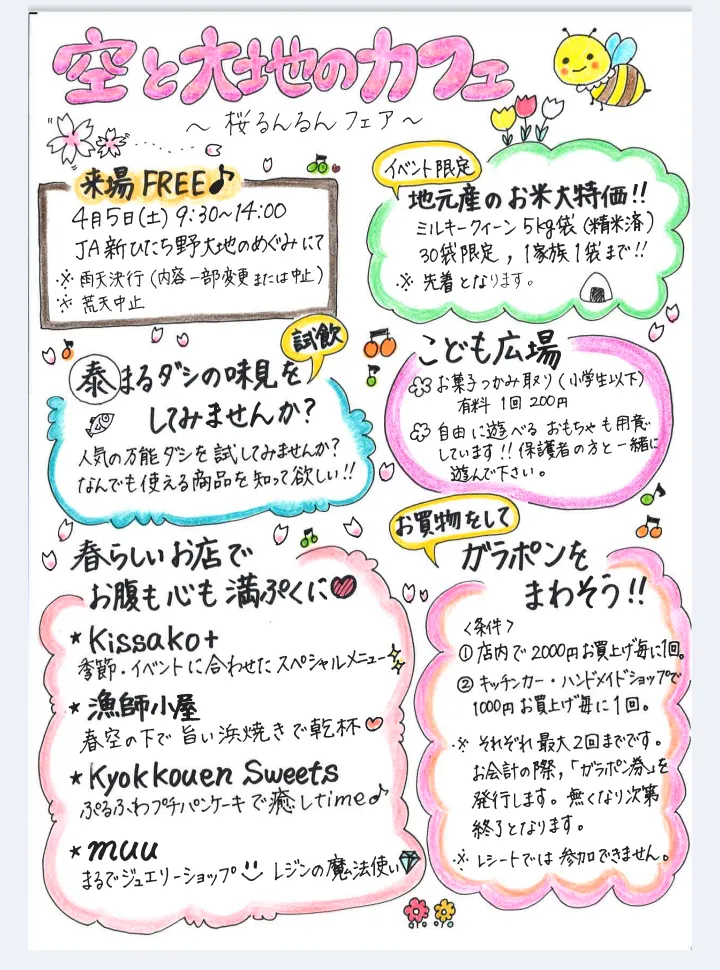 空と大地のカフェ
～ 桜るんるんフェア ～
来場 FREE♪
4月5日(土) 9:30～14:00
JA新ひたち野大地のめぐみにて
※ 雨天決行(内容一部変更または中止)
※ 荒天中止
イベント限定
地元産のお米大特価!!
ミルキークィーン 5kg袋(精米済)
30袋限定, 1家族1袋まで!!
※ 先着となります。
試飲
泰まるダシの味見を
してみませんか?
人気の万能ダシを試してみませんか?
なんでも使える商品を知って欲しい!!
こども広場
お菓子つかみ取り(小学生以下)
有料 1回 200円
自由に遊べるおもちゃも用意
しています!! 保護者の方と一緒に
遊んで下さい。
春らしいお店で
お腹も心も満ぷくに♥
★ Kissako+
季節・イベントに合わせたスペシャルメニュー
★ 漁師小屋
春空の下で旨い浜焼きで乾杯♡
★ Kyokkouen Sweets
ぷるふわプチパンケーキで癒しtime♪
★ muu
まるでジュエリーショップ レジンの魔法使い
お買物をして
ガラポンを
まわそう!!
<条件>
① 店内で2000円お買上げ毎に1回。
② キッチンカー・ハンドメイドショップで
1000円お買上げ毎に1回。
※ それぞれ最大2回までです。
お会計の際,「ガラポン券」を
発行します。無くなり次第
終了となります。
※ レシートでは参加できません。